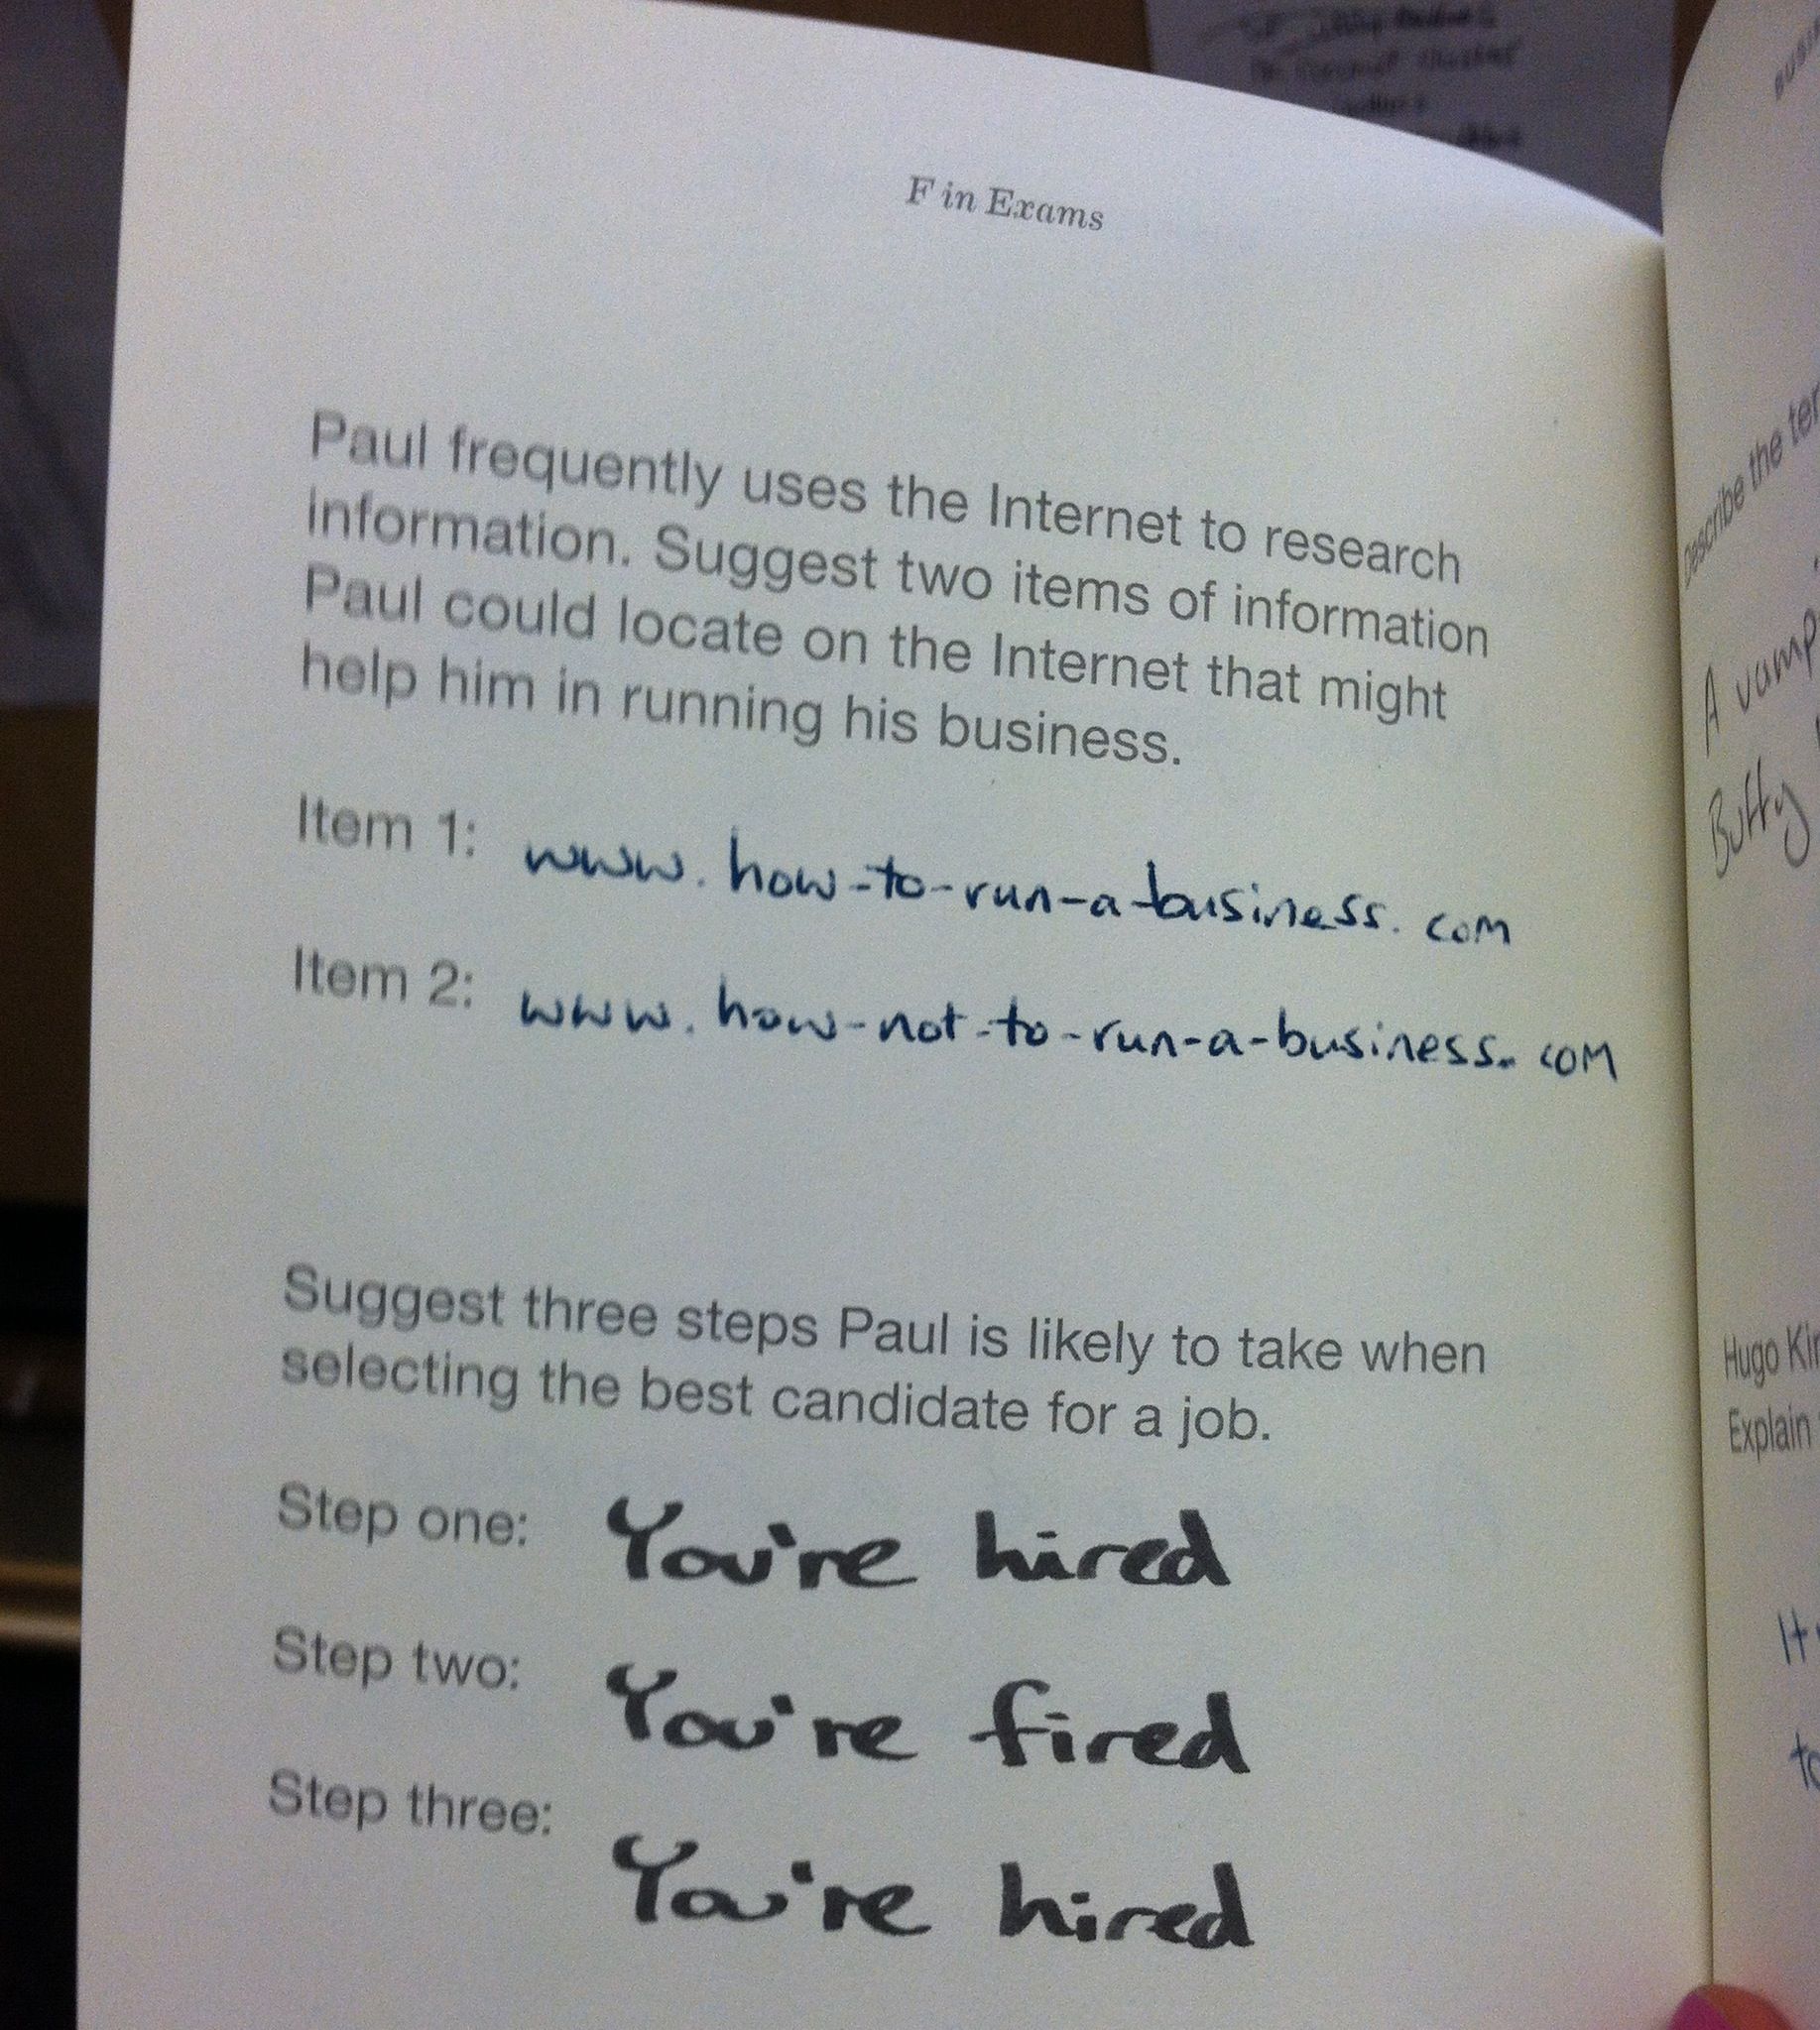 F in Exams
Paul frequently uses the Internet to research
information. Suggest two items of information
Paul could locate on the Internet that might
help him in running his business.
Item 1: www.how-to-run-a-business.com
Item 2: www.how-not-to-run-a-business.com
Suggest three steps Paul is likely to take when
selecting the best candidate for a job.
Step one: You're hired
Step two: You're fired
Step three: You're hired
Describe the
A
Buffy
Hugo
Explain